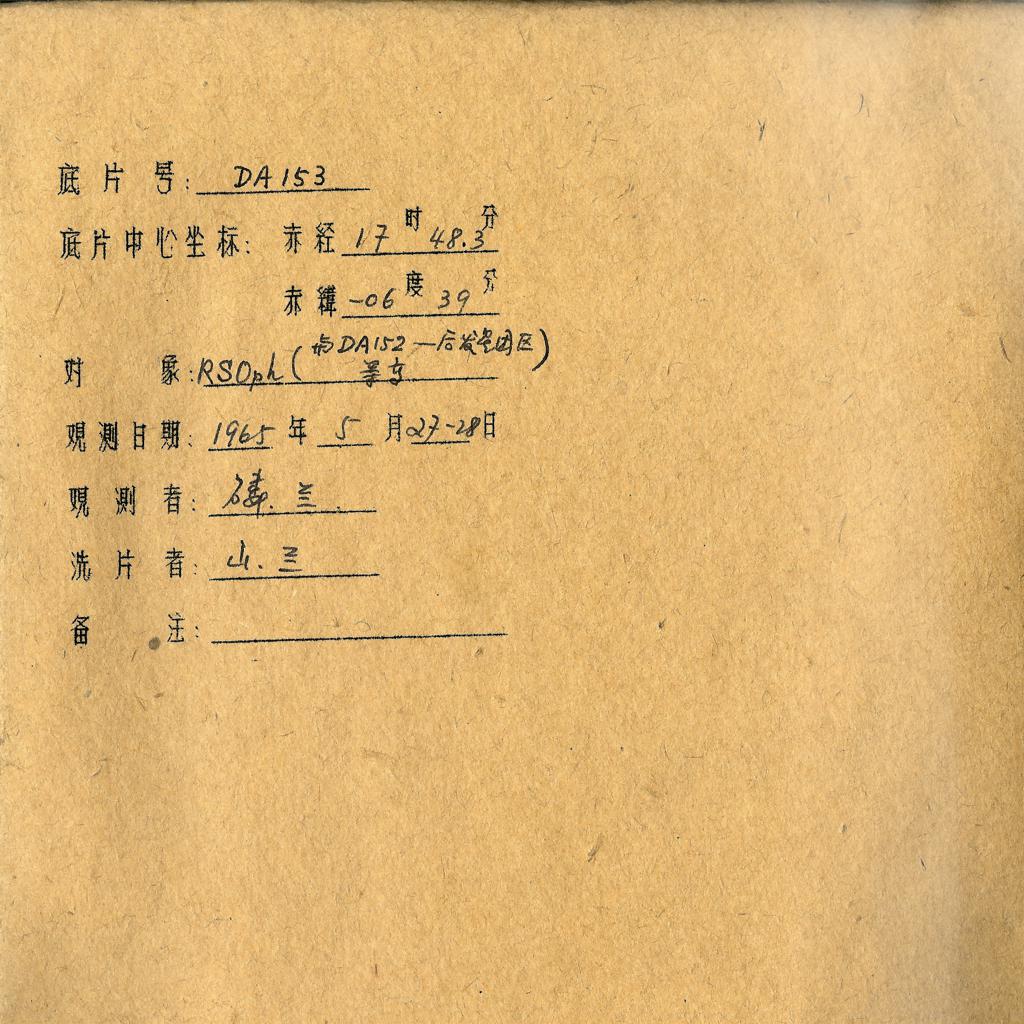 底片号: DA153
底片中心坐标: 赤经 17 时 48.3 分
赤纬 -06 度 39 分
对象: RSOph (与DA152一后发星团区等高)
观测日期: 1965 年 5 月 27-28 日
观测者: 磷.兰.
洗片者: 山.兰
备注: